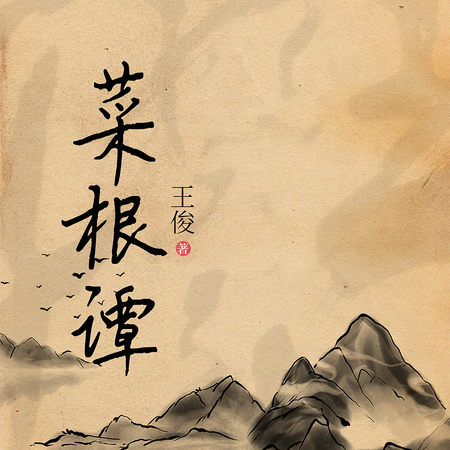 菜根谭
王俊
著